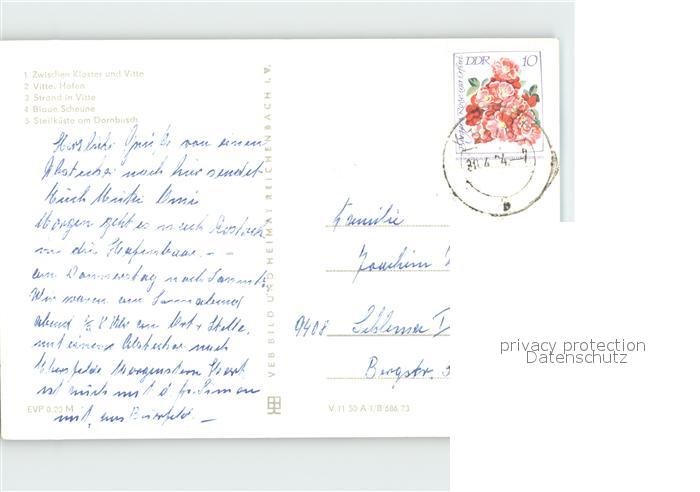 1 Zwischen Kloster und Vitte
2 Vitte, Hafen
3 Strand in Vitte
4 Blaue Scheune
5 Steilküste am Dornbusch
Herzliche Grüße von einem
Abstecher nach hier sendet
Euch
Morgen geht es nach Rostock
in die
am Donnerstag nach
Wir waren am Sonnabend
abend 1/2 8 Uhr an Ort u Stelle,
mit einem Abstecher nach
Morgenstern
ist auch mit d. fr. Simon
mit, aus
EVP 0,20 M
VEB BILD UND HEIMAT REICHENBACH i. V.
V 11 50 A 1/B 686/73
DDR 10
Familie
Joachim
9408 Schlema I
Bergstr.
privacy protection
Datenschutz